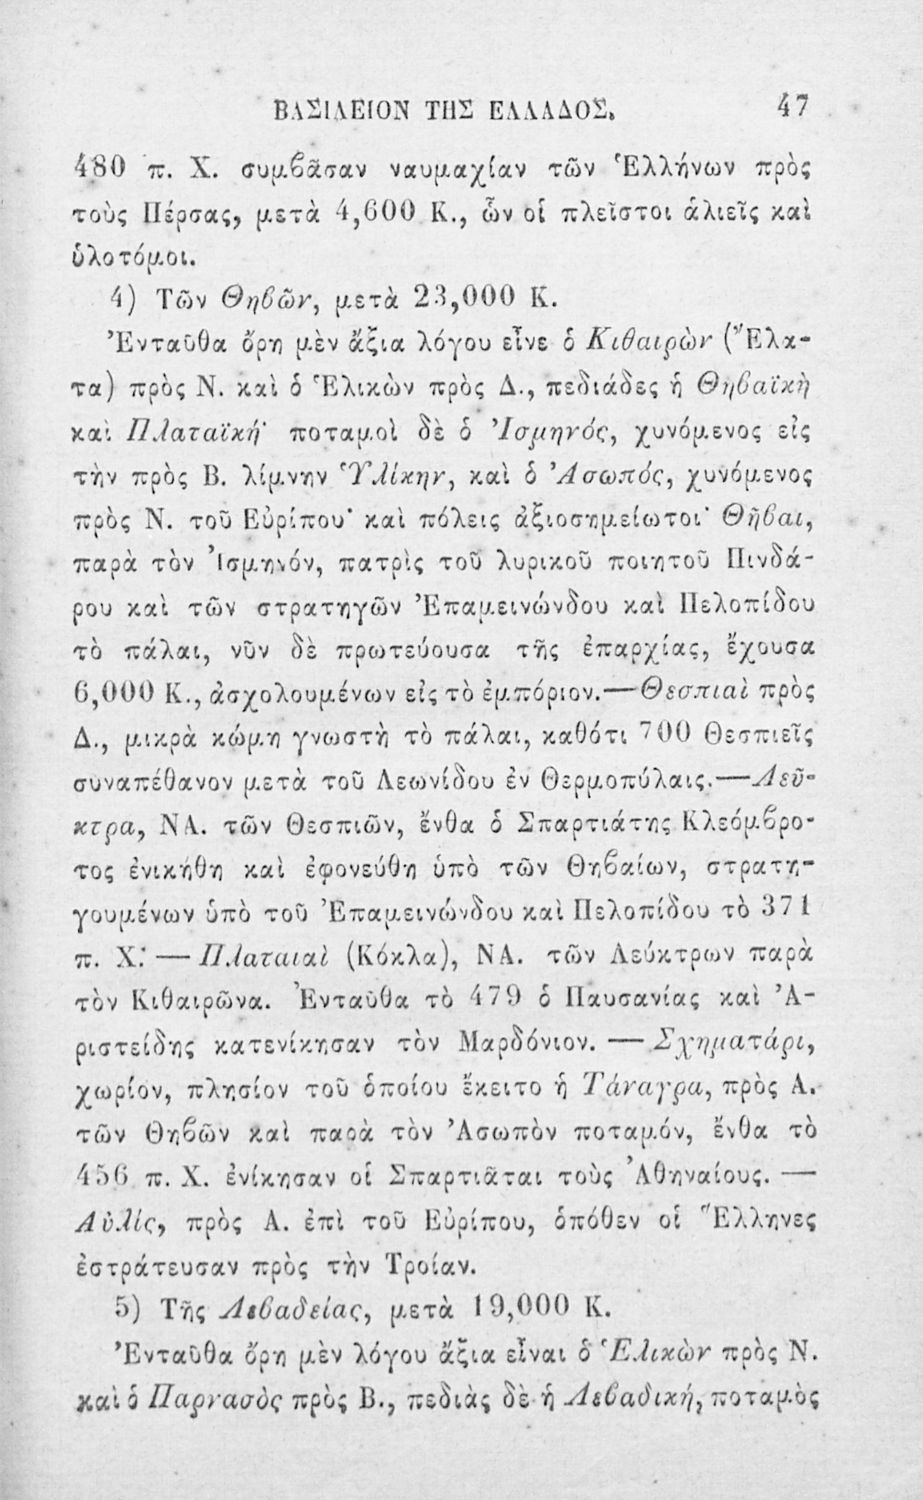 ΒΑΣΙΛΕΙΟΝ ΤΗΣ ΕΛΛΑΔΟΣ. 47
480 π. Χ. συμβᾶσαν ναυμαχίαν τῶν Ἑλλήνων πρὸς
τοὺς Πέρσας, μετὰ 4,600 Κ., ὧν οἱ πλεῖστοι ἁλιεῖς καὶ
ὑλοτόμοι.
4) Τῶν Θηβῶν, μετὰ 23,000 Κ.
Ἐνταῦθα ὄρη μὲν ἄξια λόγου εἶνε ὁ Κιθαιρὼν (Ἔλα-
τα) πρὸς Ν. καὶ ὁ Ἑλικὼν πρὸς Δ., πεδιάδες ἡ Θηβαϊκὴ
καὶ Πλαταϊκή· ποταμοὶ δὲ ὁ Ἰσμηνός, χυνόμενος εἰς
τὴν πρὸς Β. λίμνην Ὑλίκην, καὶ ὁ Ἀσωπός, χυνόμενος
πρὸς Ν. τοῦ Εὐρίπου· καὶ πόλεις ἀξιοσημείωτοι· Θῆβαι,
παρὰ τὸν Ἰσμηνόν, πατρὶς τοῦ λυρικοῦ ποιητοῦ Πινδά-
ρου καὶ τῶν στρατηγῶν Ἐπαμεινώνδου καὶ Πελοπίδου
τὸ πάλαι, νῦν δὲ πρωτεύουσα τῆς ἐπαρχίας, ἔχουσα
6,000 Κ., ἀσχολουμένων εἰς τὸ ἐμπόριον.—Θεσπιαὶ πρὸς
Δ., μικρὰ κώμη γνωστὴ τὸ πάλαι, καθότι 700 Θεσπιεῖς
συναπέθανον μετὰ τοῦ Λεωνίδου ἐν Θερμοπύλαις.—Λεῦ-
κτρα, ΝΑ. τῶν Θεσπιῶν, ἔνθα ὁ Σπαρτιάτης Κλεόμβρο-
τος ἐνικήθη καὶ ἐφονεύθη ὑπὸ τῶν Θηβαίων, στρατη-
γουμένων ὑπὸ τοῦ Ἐπαμεινώνδου καὶ Πελοπίδου τὸ 371
π. Χ.· — Πλαταιαὶ (Κόκλα), ΝΑ. τῶν Λεύκτρων παρὰ
τὸν Κιθαιρῶνα. Ἐνταῦθα τὸ 479 ὁ Παυσανίας καὶ Ἀ-
ριστείδης κατενίκησαν τὸν Μαρδόνιον. — Σχηματάρι,
χωρίον, πλησίον τοῦ ὁποίου ἔκειτο ἡ Τάναγρα, πρὸς Α.
τῶν Θηβῶν καὶ παρὰ τὸν Ἀσωπὸν ποταμόν, ἔνθα τὸ
456 π. Χ. ἐνίκησαν οἱ Σπαρτιᾶται τοὺς Ἀθηναίους. —
Αὐλίς, πρὸς Α. ἐπὶ τοῦ Εὐρίπου, ὁπόθεν οἱ Ἕλληνες
ἐστράτευσαν πρὸς τὴν Τροίαν.
5) Τῆς Λεβαδείας, μετὰ 19,000 Κ.
Ἐνταῦθα ὄρη μὲν λόγου ἄξια εἶναι ὁ Ἑλικὼν πρὸς Ν.
καὶ ὁ Παρνασὸς πρὸς Β., πεδιὰς δὲ ἡ Λεβαδική, ποταμὸς